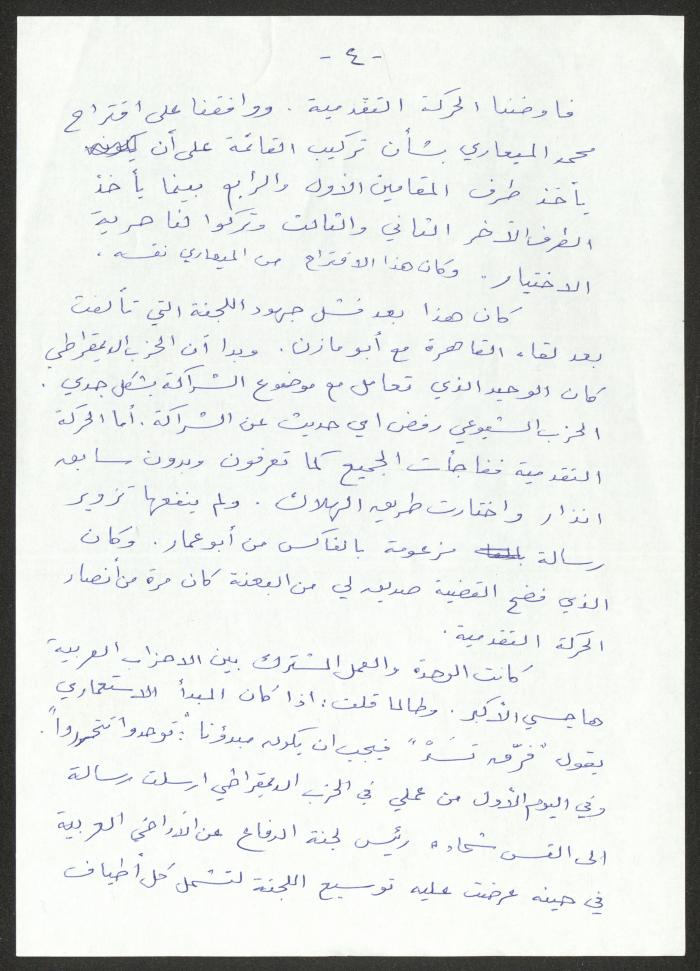 - ٤ -
فاوضنا الحركة التقدمية . ووافقنا على اقتراح
محمد الميعاري بشأن تركيب القائمة على أن يكون
يأخذ طرف المقامين الأول والرابع بينما يأخذ
الطرف الآخر الثاني والثالث وتركوا لنا حرية
الاختيار . وكان هذا الاقتراح من الميعاري نفسه .
كان هذا بعد فشل جهود اللجنة التي تألفت
بعد لقاء القاهرة مع أبو مازن . وبدا أن الحزب الديمقراطي
كان الوحيد الذي تعامل مع موضوع الشراكة بشكل جدي .
الحزب الشيوعي رفض اي حديث عن الشراكة . أما الحركة
التقدمية ففاجأت الجميع كما تعرفون وبدون سابق
انذار واختارت طريق الهلاك . ولم ينفعها تزوير
رسالة مزعومة بالفاكس من أبو عمار . وكان
الذي فضح القضية صديق لي من البعنة كان مرة من أنصار
الحركة التقدمية .
كانت الوحدة والعمل المشترك بين الاحزاب العربية
هاجسي الأكبر . وطالما قلت : اذا كان المبدأ الاستعماري
يقول "فرّق تسُدْ" فيجب ان يكون مبدؤنا : "توحدوا تتحرروا" .
وفي اليوم الأول من عملي في الحزب الديمقراطي ارسلت رسالة
الى القس شحاده رئيس لجنة الدفاع عن الأراضي العربية
في حينه عرضت عليه توسيع اللجنة لتشمل كل أطياف